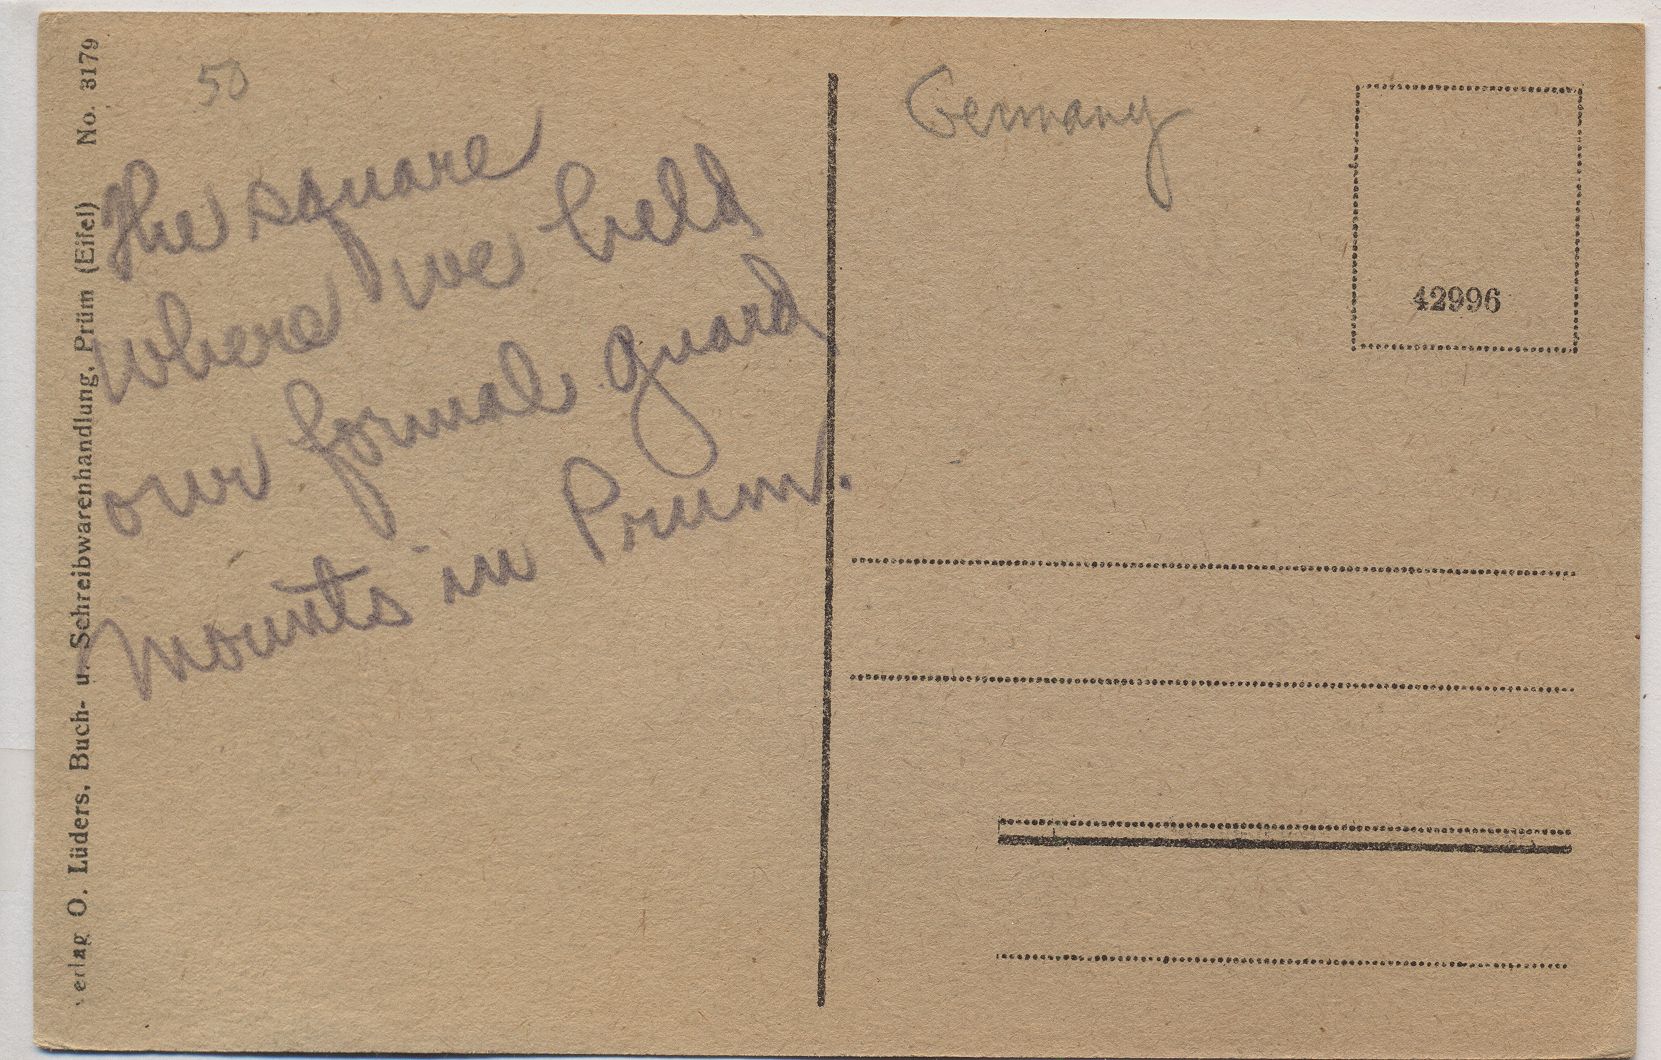 50
The square
where we held
our formal guard
mounts in Prum.
Germany
42996
Verlag O. Lüders, Buch- u. Schreibwarenhandlung, Prüm (Eifel) No. 3179